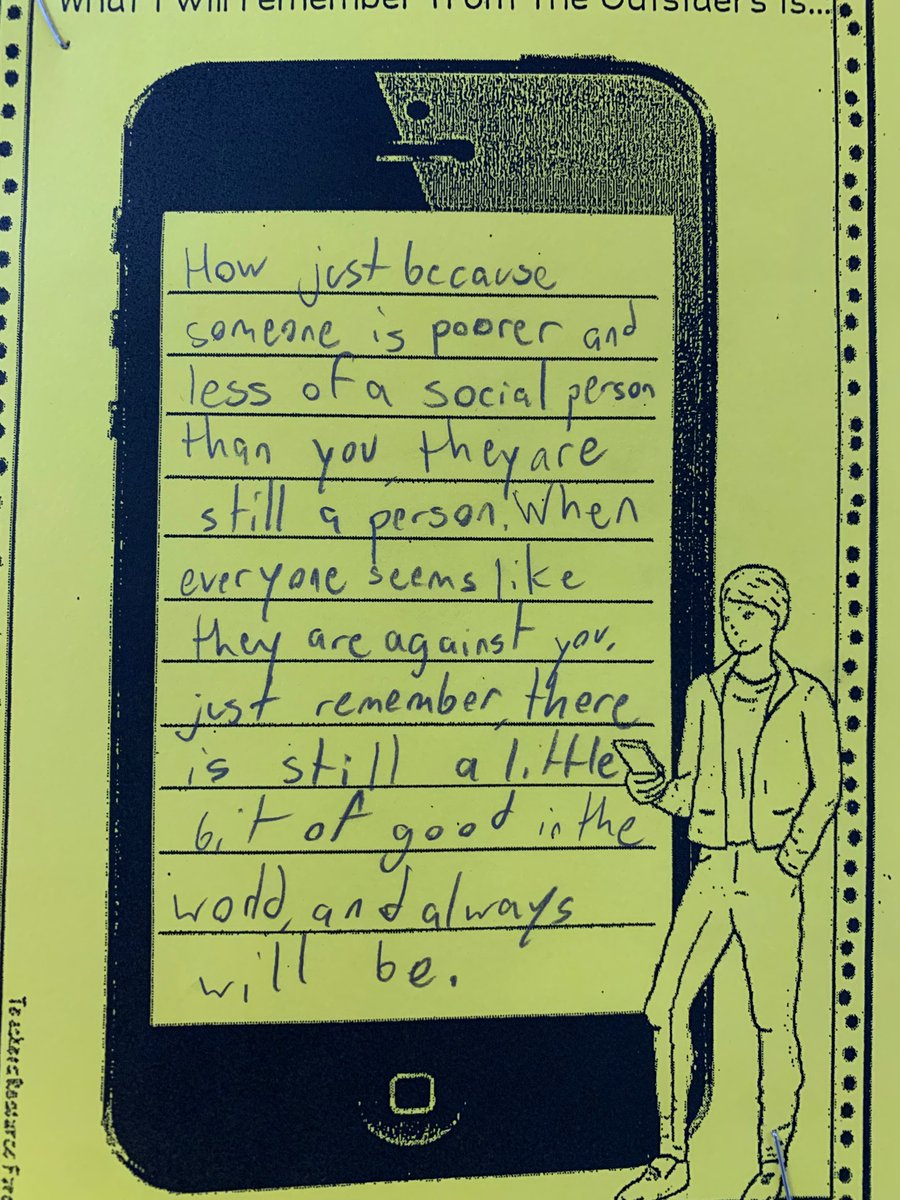 What I will remember from The Outsiders is...
How just because
someone is poorer and
less of a social person
than you, they are
still a person. When
everyone seems like
they are against you,
just remember, there
is still a little
bit of good in the
world, and always
will be.